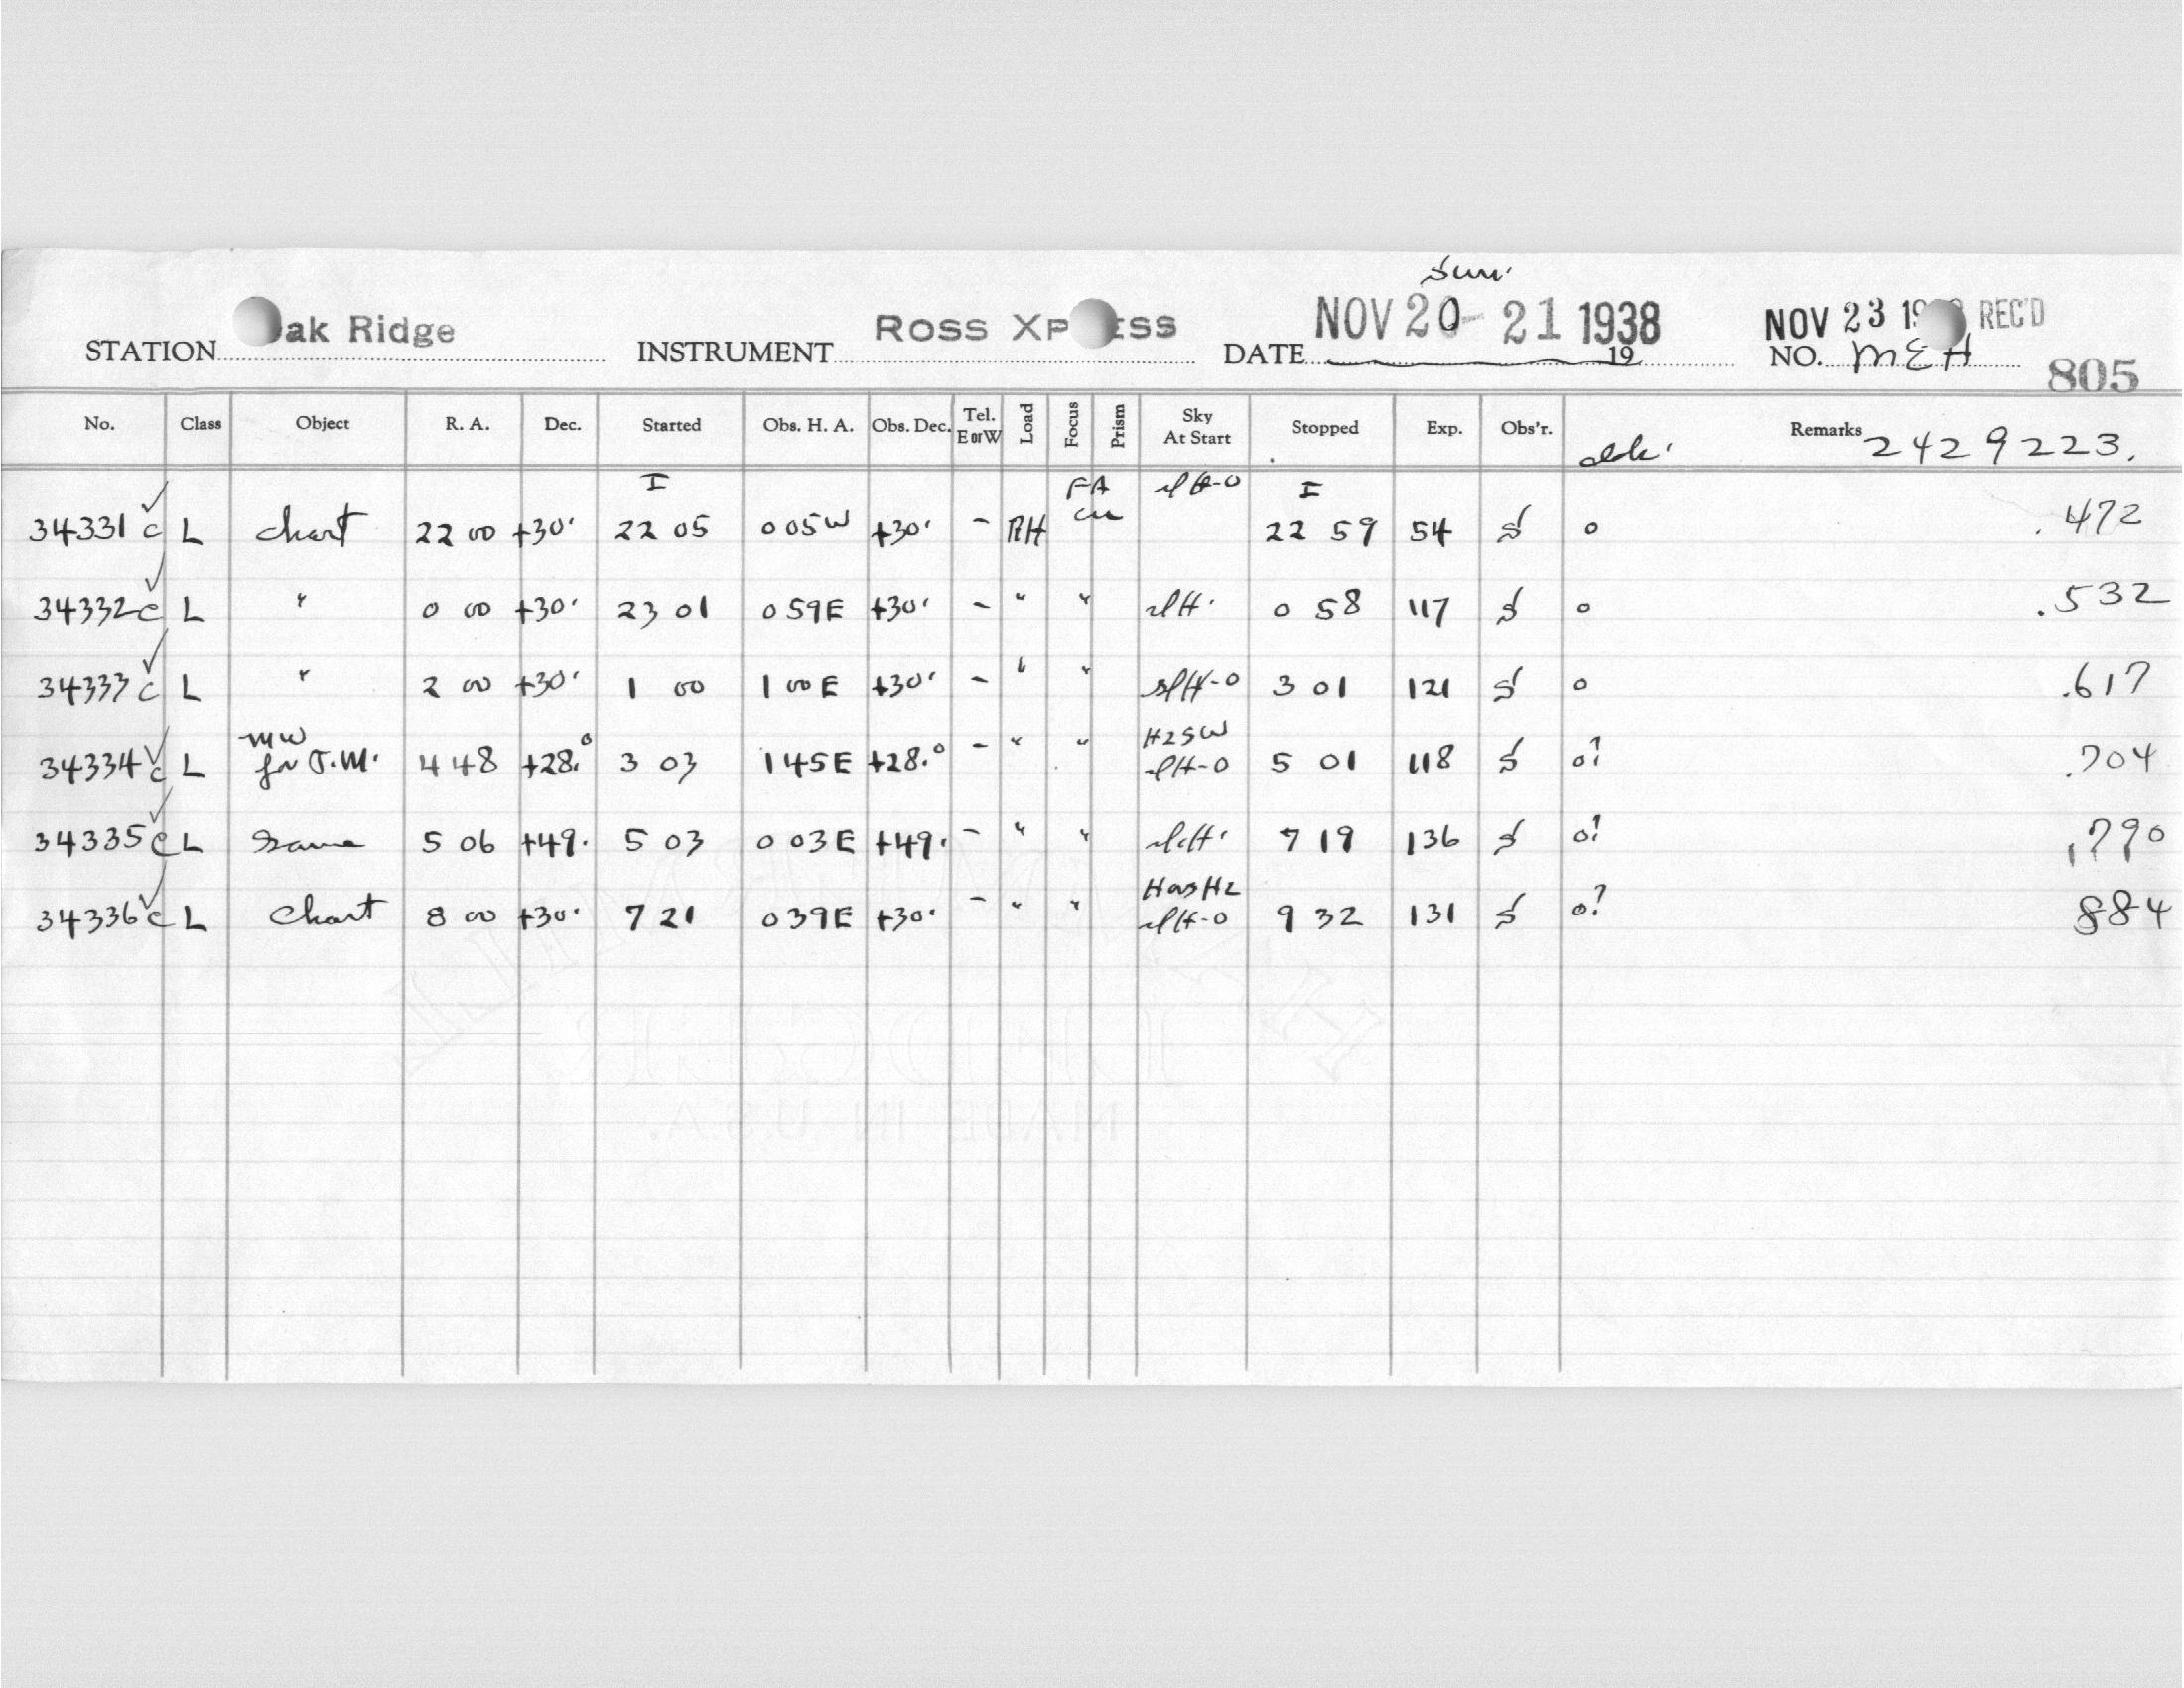 Sun.
STATION ak Ridge INSTRUMENT ROSS XP ESS DATE NOV 20-21 1938 19 NOV 23 19 REC'D
NO. MEH 805
No. Class Object R. A. Dec. Started Obs. H. A. Obs. Dec. Tel. E or W Load Focus Prism Sky At Start Stopped Exp. Obs'r. Remarks 2429223.
I FA I
34331 c L chart 22 00 +30° 22 05 0 05W +30° - RH 22 59 54 S 0 .472
34332 c L " 0 00 +30° 23 01 0 59E +30° - " " slH. 0 58 117 S 0 .532
34333 c L " 2 00 +30° 1 00 1 00E +30° - " " slH-0 3 01 121 S 0 .617
MW H2SW
34334 c L for J.M. 4 48 +28.° 3 03 1 45E +28.° - " " slH-0 5 01 118 S 0? .704
34335 c L Same 5 06 +49. 5 03 0 03E +49. - " " 7 19 136 S 0? .790
34336 c L Chart 8 00 +30° 7 21 0 39E +30° - " " slH-0 9 32 131 S 0? 884
MADE IN U.S.A.